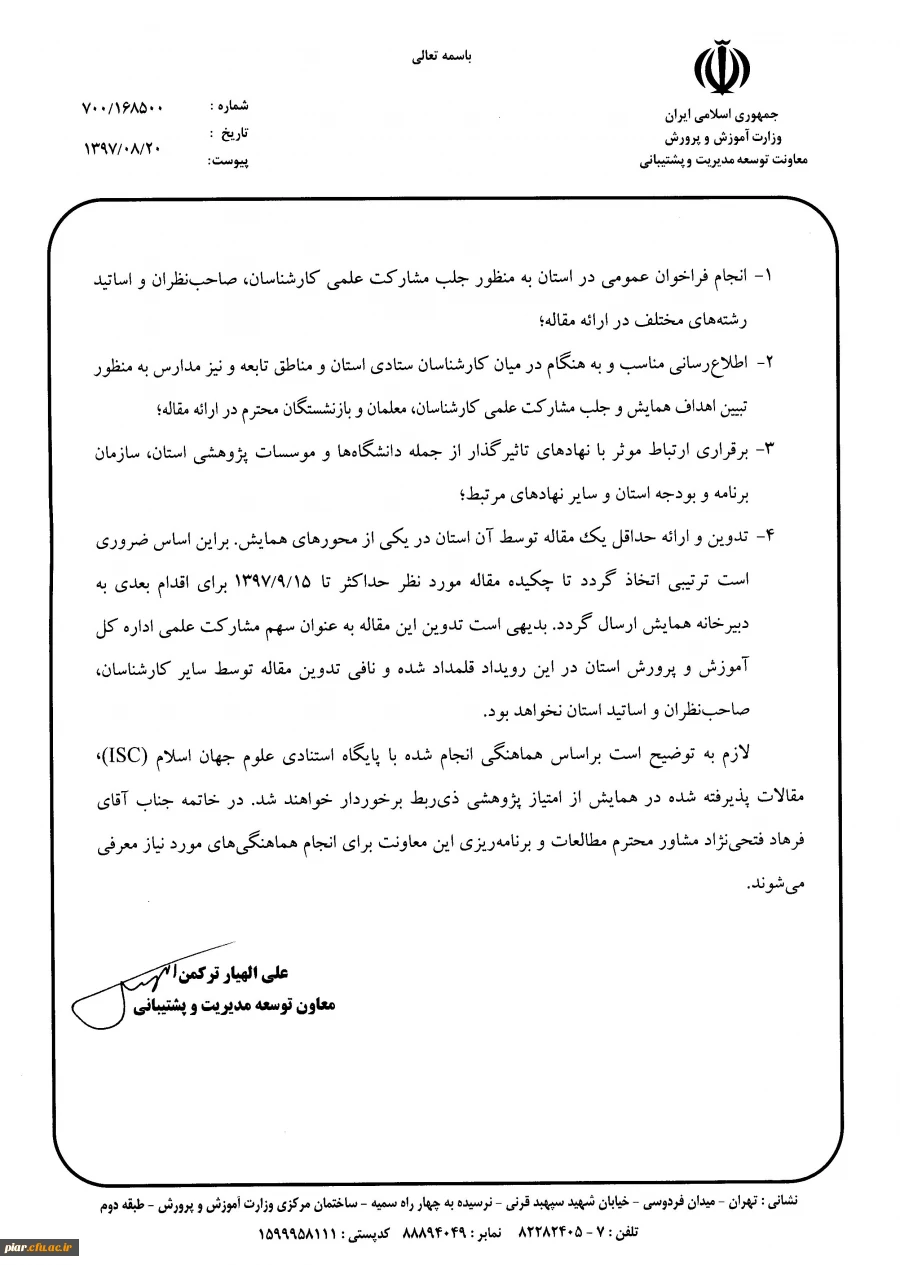 باسمه تعالی
جمهوری اسلامی ایران
وزارت آموزش و پرورش
معاونت توسعه مدیریت و پشتیبانی
شماره : ۷۰۰/۱۶۸۵۰۰
تاریخ : ۱۳۹۷/۰۸/۲۰
پیوست:
۱- انجام فراخوان عمومی در استان به منظور جلب مشارکت علمی کارشناسان، صاحب‌نظران و اساتید
رشته‌های مختلف در ارائه مقاله؛
۲- اطلاع‌رسانی مناسب و به هنگام در میان کارشناسان ستادی استان و مناطق تابعه و نیز مدارس به منظور
تبیین اهداف همایش و جلب مشارکت علمی کارشناسان، معلمان و بازنشستگان محترم در ارائه مقاله؛
۳- برقراری ارتباط موثر با نهادهای تاثیرگذار از جمله دانشگاه‌ها و موسسات پژوهشی استان، سازمان
برنامه و بودجه استان و سایر نهادهای مرتبط؛
۴- تدوین و ارائه حداقل یک مقاله توسط آن استان در یکی از محورهای همایش. براین اساس ضروری
است ترتیبی اتخاذ گردد تا چکیده مقاله مورد نظر حداکثر تا ۱۳۹۷/۹/۱۵ برای اقدام بعدی به
دبیرخانه همایش ارسال گردد. بدیهی است تدوین این مقاله به عنوان سهم مشارکت علمی اداره کل
آموزش و پرورش استان در این رویداد قلمداد شده و نافی تدوین مقاله توسط سایر کارشناسان،
صاحب‌نظران و اساتید استان نخواهد بود.
لازم به توضیح است براساس هماهنگی انجام شده با پایگاه استنادی علوم جهان اسلام (ISC)،
مقالات پذیرفته شده در همایش از امتیاز پژوهشی ذی‌ربط برخوردار خواهند شد. در خاتمه جناب آقای
فرهاد فتحی‌نژاد مشاور محترم مطالعات و برنامه‌ریزی این معاونت برای انجام هماهنگی‌های مورد نیاز معرفی
می‌شوند.
علی الهیار ترکمن
معاون توسعه مدیریت و پشتیبانی
نشانی : تهران - میدان فردوسی - خیابان شهید سپهبد قرنی - نرسیده به چهار راه سمیه - ساختمان مرکزی وزارت آموزش و پرورش - طبقه دوم
تلفن : ۷ - ۸۲۲۸۲۴۰۵ نمابر : ۸۸۸۹۴۰۴۹ کدپستی : ۱۵۹۹۹۵۸۱۱۱
piar.cfu.ac.ir